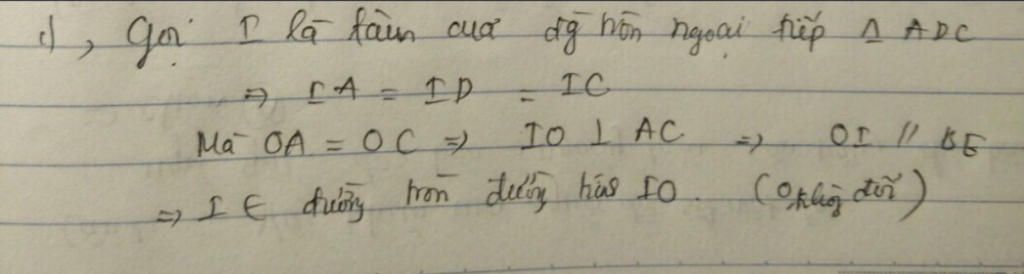 c), Gọi I là tâm của đg tròn ngoại tiếp Δ ADC
=> IA = ID = IC
Mà OA = OC => IO ⊥ AC => OI // BE
=> I ∈ đường tròn đường kính IO. (O không đổi)